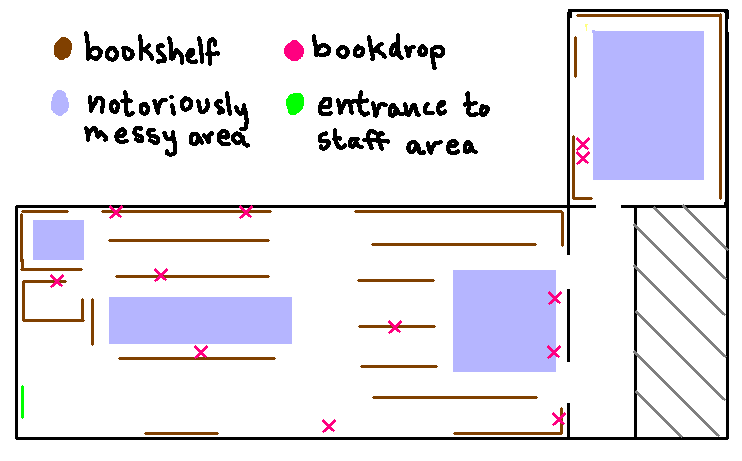 bookshelf
bookdrop
notoriously
messy area
entrance to
staff area